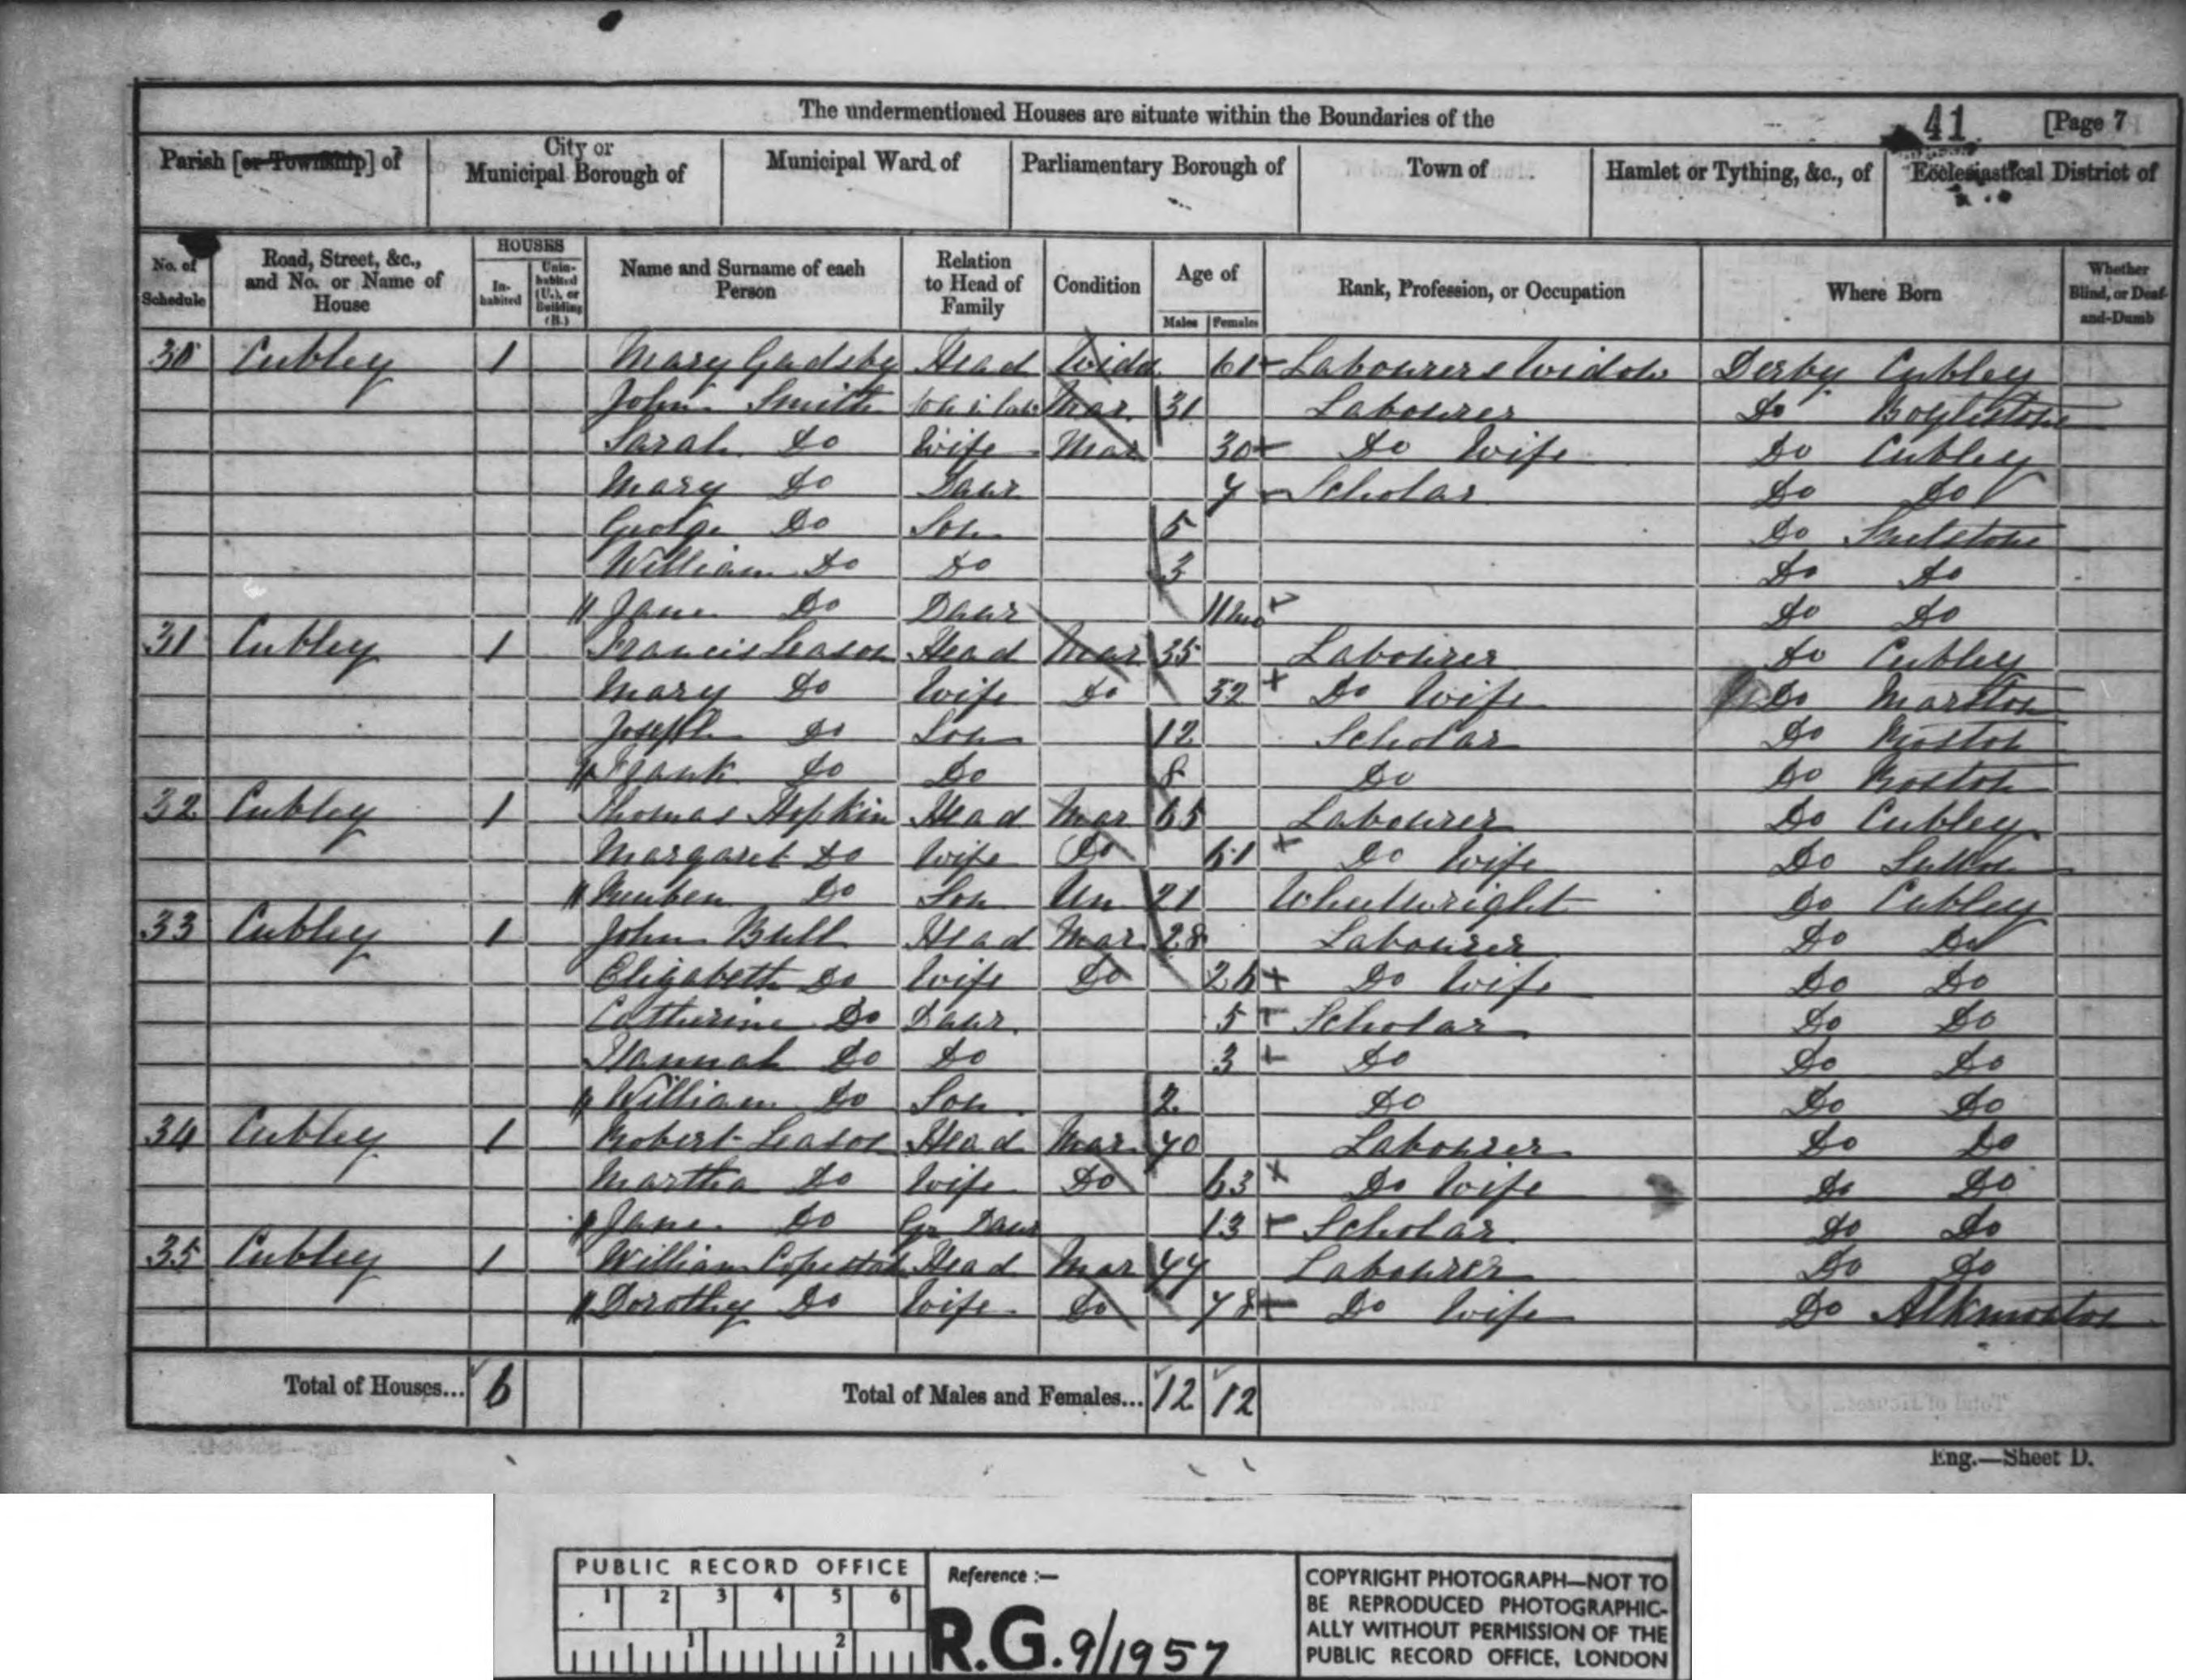 The undermentioned Houses are situate within the Boundaries of the
41 [Page 7
Parish [or Township] of City or Municipal Borough of Municipal Ward of Parliamentary Borough of Town of Hamlet or Tything, &c., of Ecclesiastical District of
No. of Schedule Road, Street, &c., and No. or Name of House HOUSES Inhabited Uninhabited (U.), or Building (B.) Name and Surname of each Person Relation to Head of Family Condition Age of Males Females Rank, Profession, or Occupation Where Born Whether Blind, or Deaf-and-Dumb
30 Cubley 1 Mary Gadsby Head Widd 61 Labourers Widow Derby Cubley
John Smith Mar 31 Labourer Do Boylestone
Sarah Do Wife Mar 30 Do Wife Do Cubley
Mary Do Daur 7 Scholar Do Do
George Do Son 5 Do Snelstone
William Do Do 3 Do Do
Jane Do Daur 11 mo Do Do
31 Cubley 1 Francis Leason Head Mar 35 Labourer Do Cubley
Mary Do Wife Do 32 Do Wife Do Marston
Joseph Do Son 12 Scholar Do Roston
Frank Do Do 8 Do Do Roston
32 Cubley 1 Thomas Hopkin Head Mar 65 Labourer Do Cubley
Margaret Do Wife Do 61 Do Wife Do
Reuben Do Son Un 21 Wheelwright Do Cubley
33 Cubley 1 John Bull Head Mar 28 Labourer Do Do
Elizabeth Do Wife Do 26 Do Wife Do Do
Catherine Do Daur 5 Scholar Do Do
Hannah Do Do 3 Do Do Do
William Do Son 2 Do Do Do
34 Cubley 1 Robert Leason Head Mar 70 Labourer Do Do
Martha Do Wife Do 63 Do Wife Do Do
Jane Do Gr Daur 13 Scholar Do Do
35 Cubley 1 William Copestak Head Mar 77 Labourer Do Do
Dorothy Do Wife Do 78 Do Wife Do Alkmonton
Total of Houses... 6 Total of Males and Females... 12 12
Eng.—Sheet D.
PUBLIC RECORD OFFICE
1 2 3 4 5 6
1 2
Reference :—
R.G. 9/1957
COPYRIGHT PHOTOGRAPH—NOT TO
BE REPRODUCED PHOTOGRAPHIC-
ALLY WITHOUT PERMISSION OF THE
PUBLIC RECORD OFFICE, LONDON